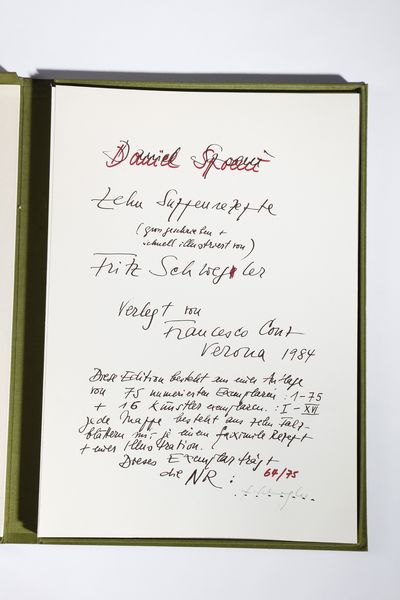 Daniel Spoerri
Zehn Suppenrezepte
(geschrieben +
schnell illustriert von)
Fritz Schwegler
Verlegt von
Francesco Conz
Verona 1984
Diese Edition besteht aus einer Auflage
von 75 numerierten Exemplaren: 1-75
+ 16 Künstlerexemplaren.: I - XVI
jede Mappe besteht aus zehn Falz-
blättern mit je einem facsimile Rezept
+ einer Illustration.
Dieses Exemplar trägt
die NR: 64/75